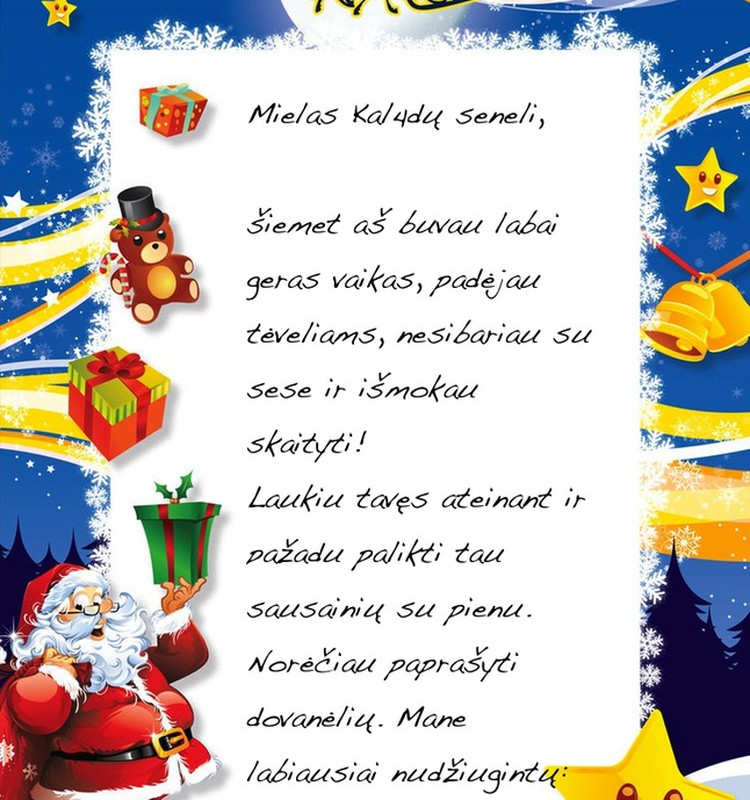 Mielas Kalėdų seneli,
šiemet aš buvau labai
geras vaikas, padėjau
tėveliams, nesibariau su
sese ir išmokau
skaityti!
Laukiu tavęs ateinant ir
pažadu palikti tau
sausainių su pienu.
Norėčiau paprašyti
dovanėlių. Mane
labiausiai nudžiugintų: